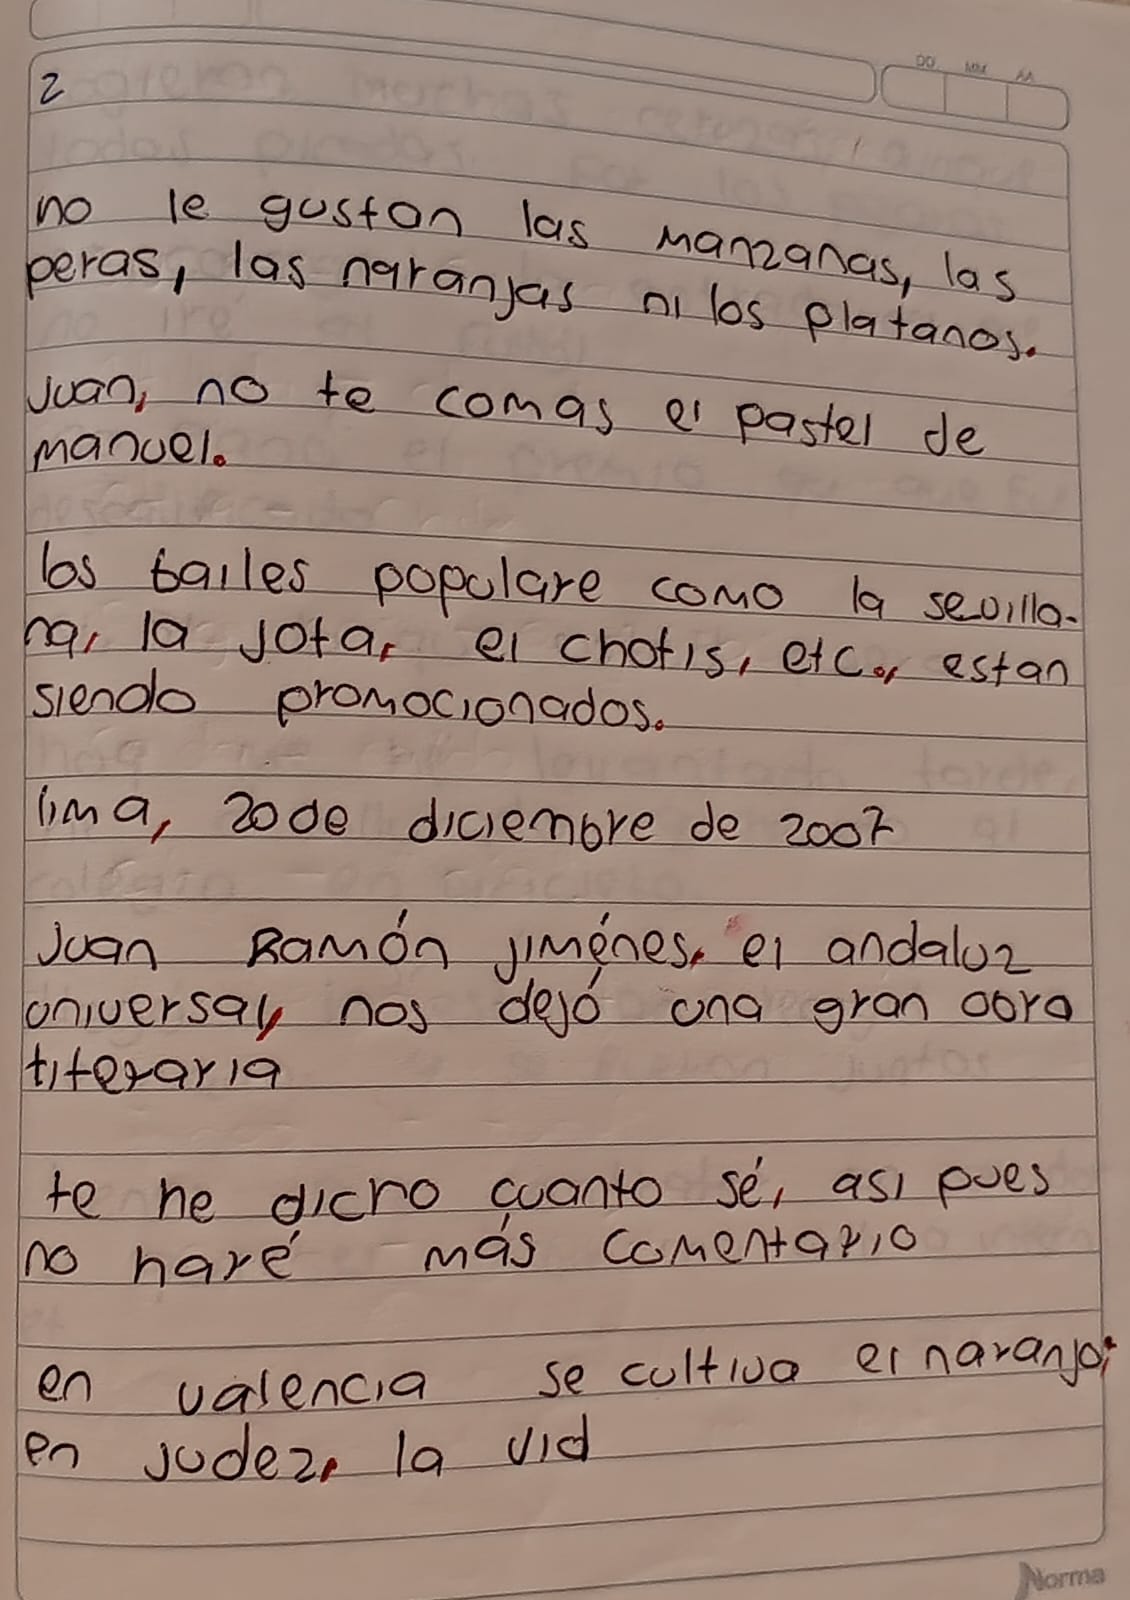 DD MM AA
2
no le gustan las manzanas, las
peras, las naranjas ni los platanos.
Juan, no te comas el pastel de
manuel.
los bailes populare como la sevilla-
na, la jota, el chotis, etc., estan
siendo promocionados.
lima, 20 de diciembre de 2007
Juan Ramón jiménes, el andaluz
universal, nos dejó una gran obra
titeraria
te he dicho cuanto sé, asi pues
no haré más comentario
en valencia se cultiva el naranjo;
en judez, la vid
Norma